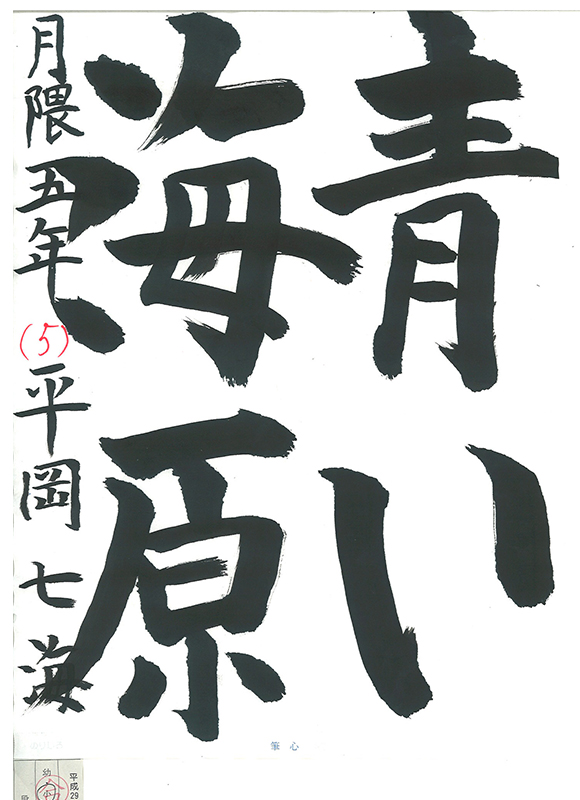 青い
海原
月隈 五年 (5) 平岡 七海
筆心
平成29
幼